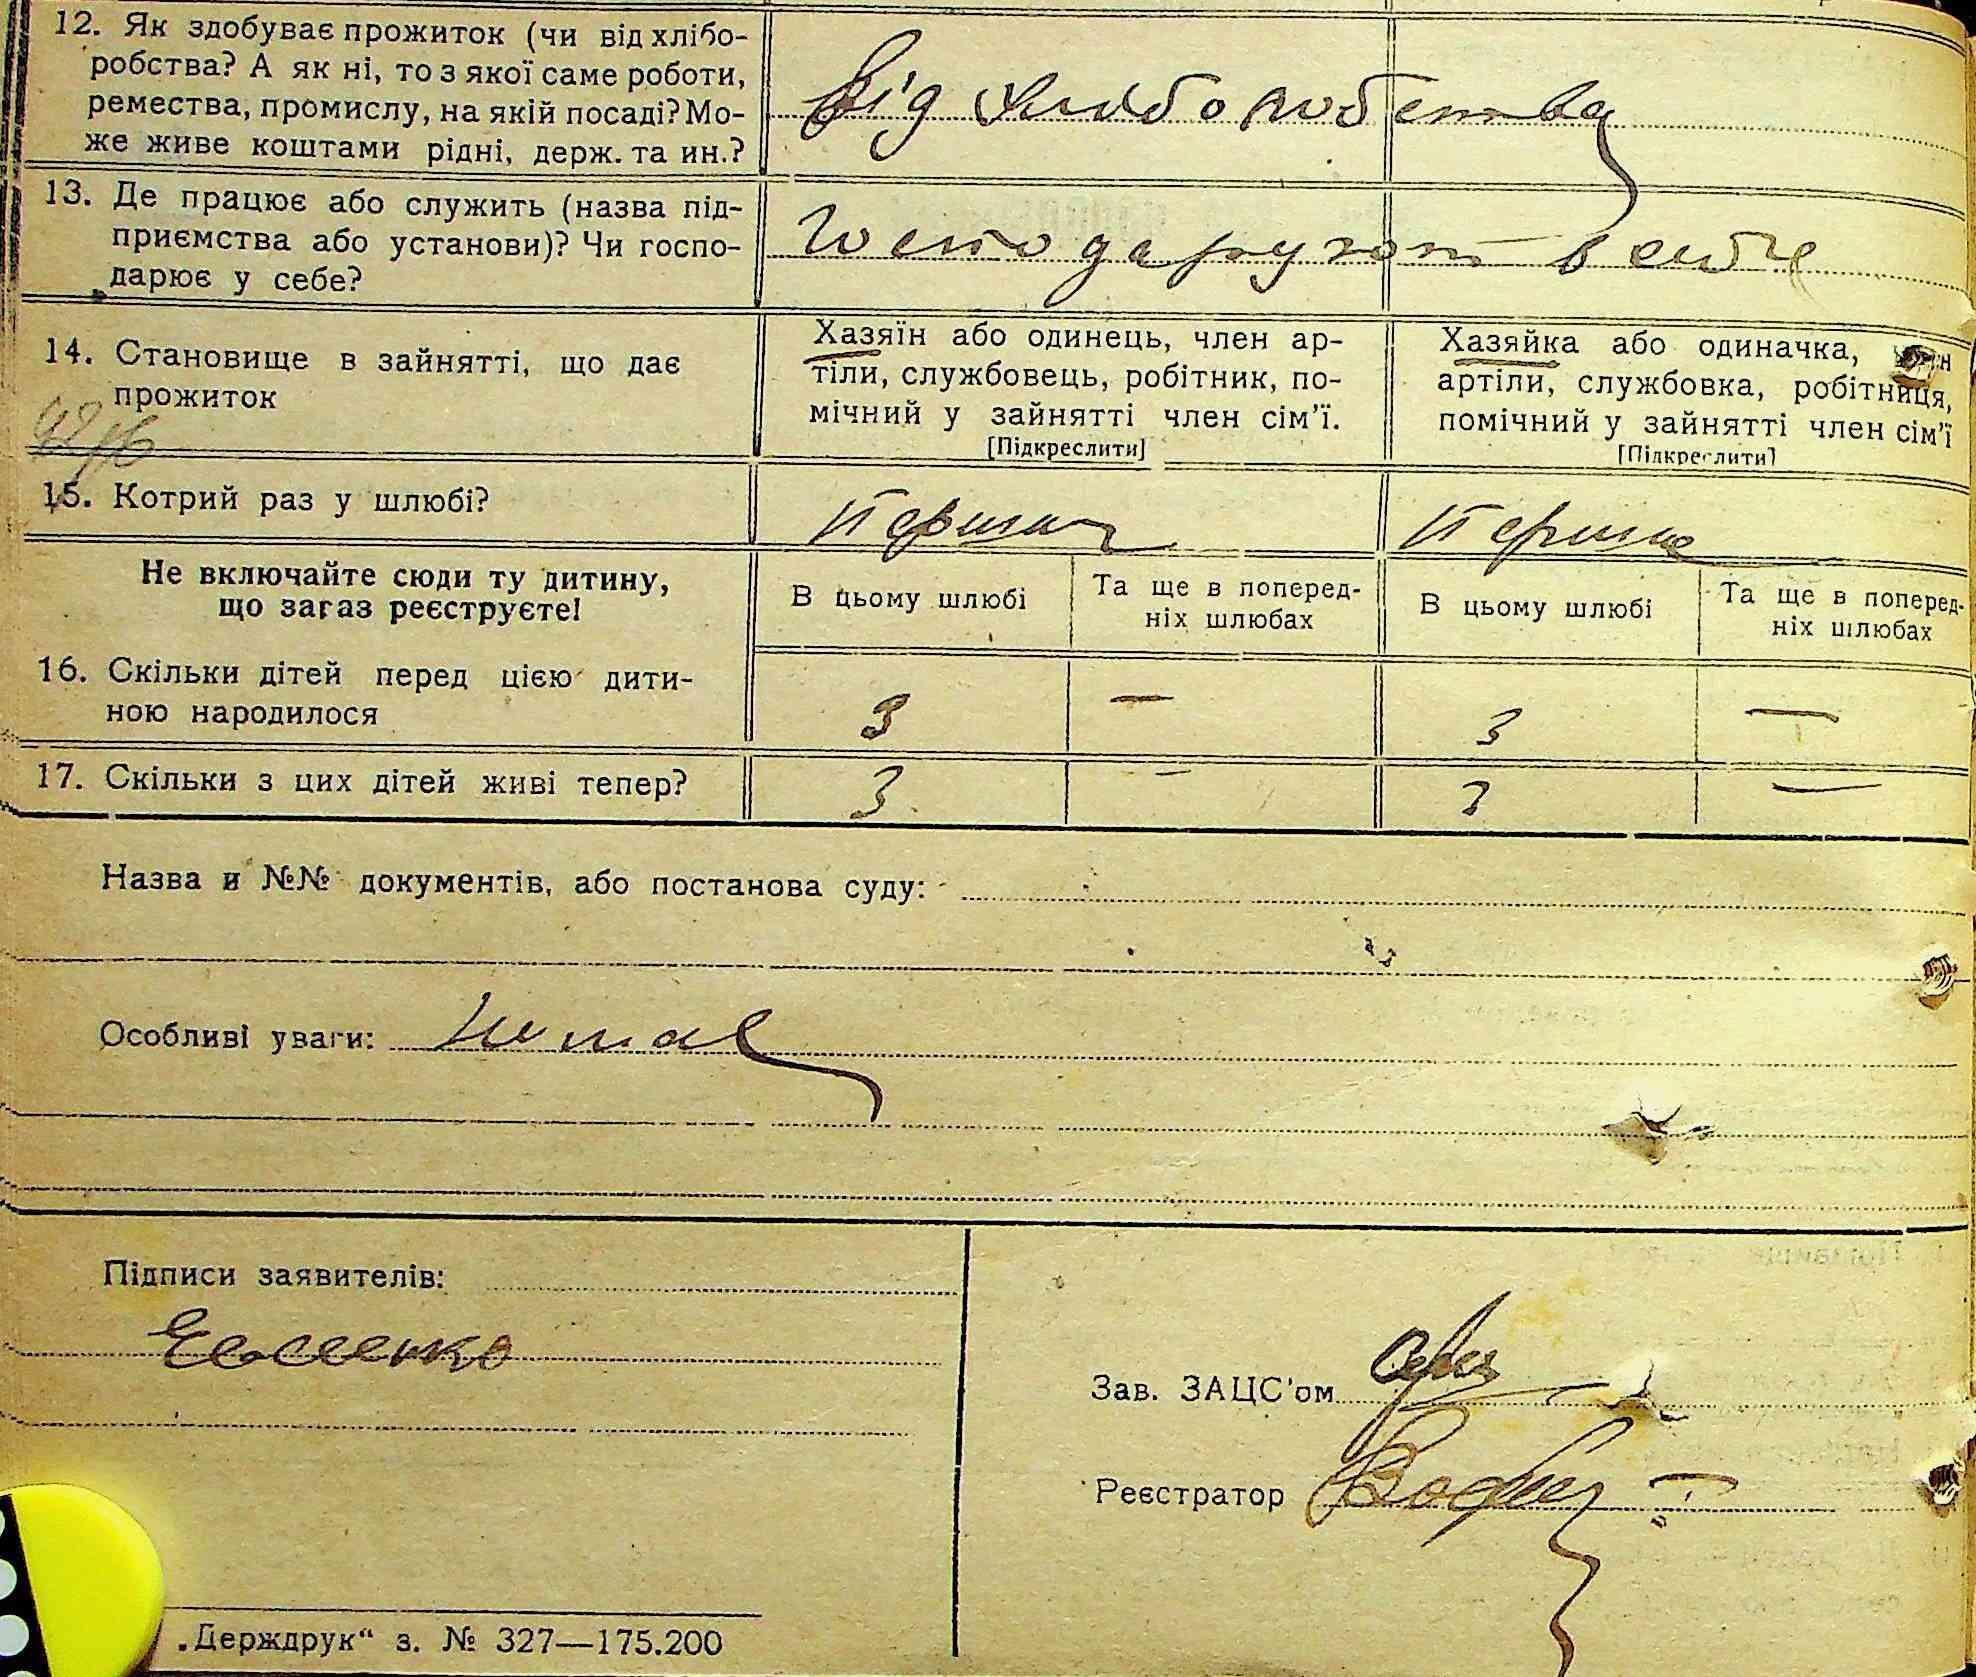 12. Як здобуває прожиток (чи від хлібо-
робства? А як ні, то з якої саме роботи,
ремества, промислу, на якій посаді? Мо-
же живе коштами рідні, держ. та ин.?
Від хлиборобства
13. Де працює або служить (назва під-
приємства або установи)? Чи госпо-
дарює у себе?
Господарують в себе
14. Становище в зайнятті, що дає
прожиток
Хазяїн або одинець, член ар-
тіли, службовець, робітник, по-
мічний у зайнятті член сім'ї.
[Підкреслити]
Хазяйка або одиначка,
артіли, службовка, робітниця,
помічний у зайнятті член сім'ї
[Підкреслити]
15. Котрий раз у шлюбі?
Перший Перший
Не включайте сюди ту дитину,
що зараз реєструєте!
В цьому шлюбі
Та ще в поперед-
ніх шлюбах
В цьому шлюбі
Та ще в поперед-
ніх шлюбах
16. Скільки дітей перед цією дити-
ною народилося
3 — 3 —
17. Скільки з цих дітей живі тепер?
3 — 3 —
Назва и №№ документів, або постанова суду:
Особливі уваги: Немає
Підписи заявителів:
Євсенко
Зав. ЗАЦС'ом
Реєстратор
„Держдрук“ з. № 327—175.200